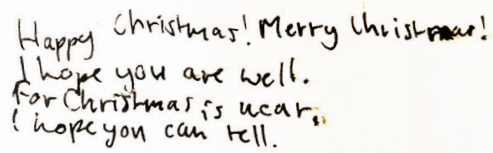 Happy Christmas! Merry Christmas!
I hope you are well.
For Christmas is near,
I hope you can tell.